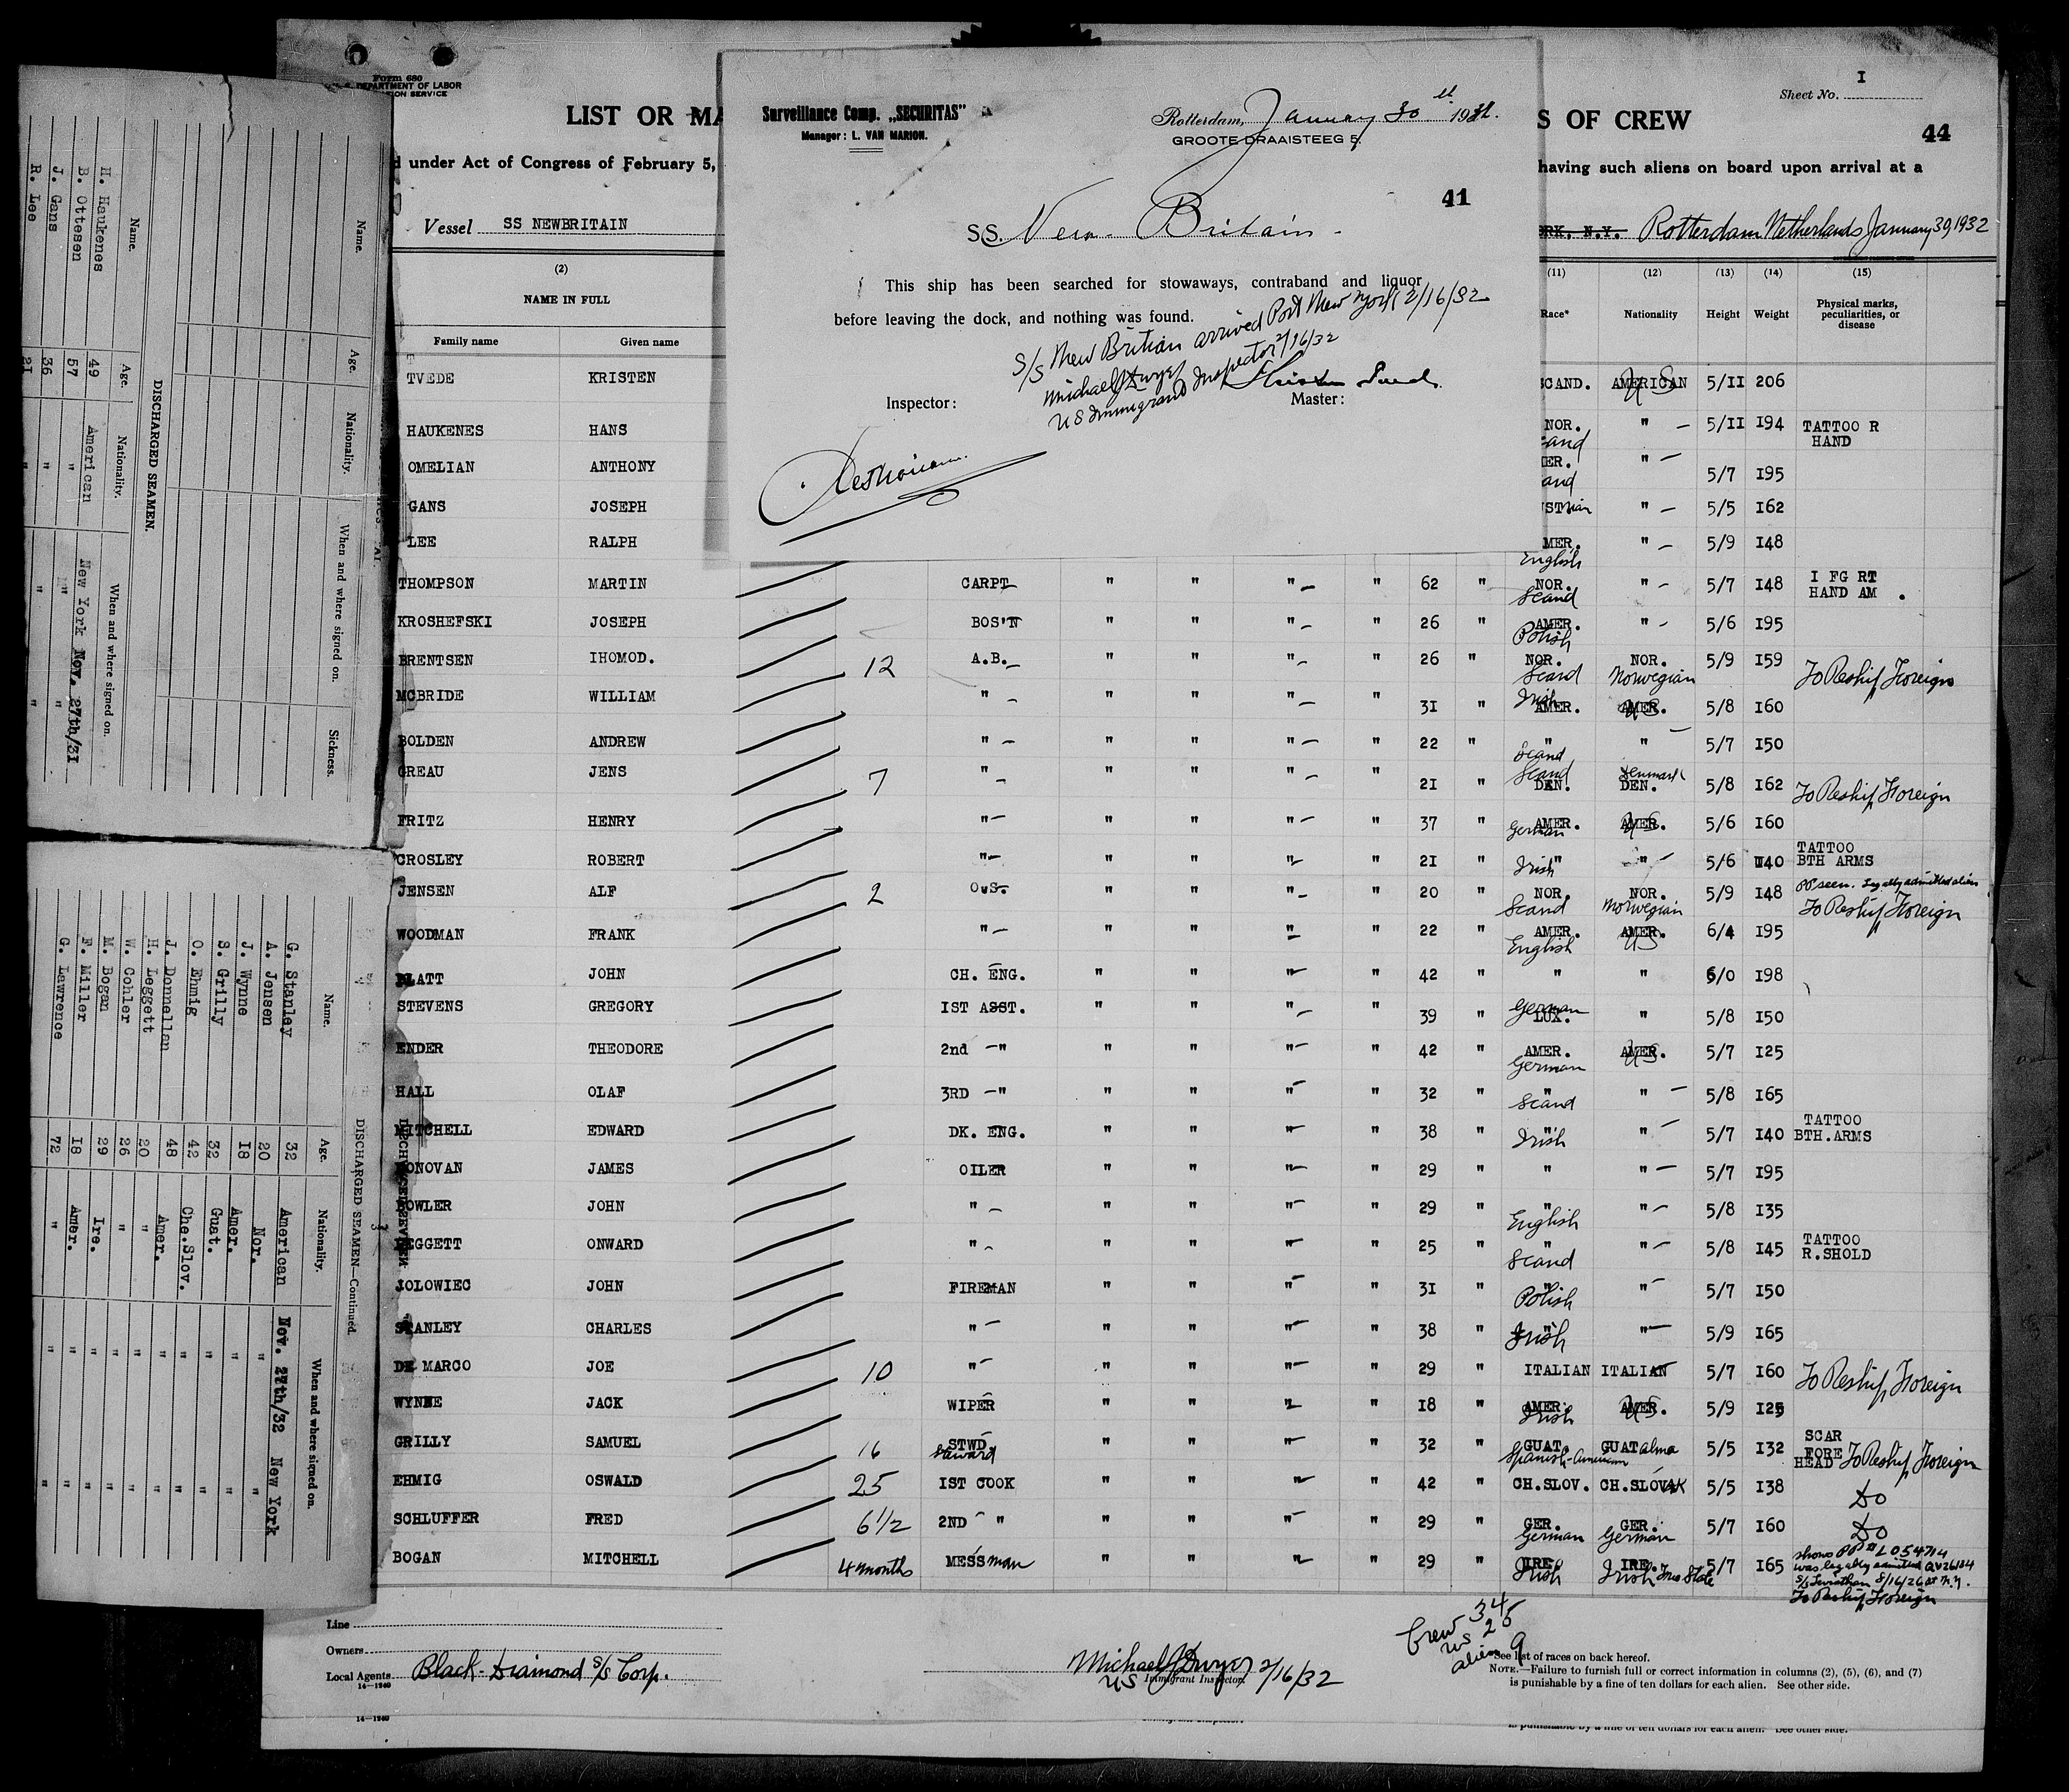 Form 680
DEPARTMENT OF LABOR
LIST OR MA
S OF CREW
Sheet No. I
44
d under Act of Congress of February 5,
having such aliens on board upon arrival at a
Vessel SS NEWBRITAIN
RK, N.Y. Rotterdam Netherlands January 30, 1932
Surveillance Comp. „SECURITAS"
Manager: L. VAN MARION.
Rotterdam, January 30th 1932.
GROOTE DRAAISTEEG 5.
41
SS. New Britain
This ship has been searched for stowaways, contraband and liquor
before leaving the dock, and nothing was found.
S/S New Britian arrived Port New York 2/16/32
Michael J Dwyer
US Immigrant Inspector 2/16/32
Inspector:
Master:
(2) (11) (12) (13) (14) (15)
NAME IN FULL
Family name Given name Race* Nationality Height Weight Physical marks, peculiarities, or disease
TVEDE KRISTEN SCAND. AMERICAN US 5/II 206
HAUKENES HANS NOR. " — 5/II I94 TATTOO R HAND
OMELIAN ANTHONY " — 5/7 I95
GANS JOSEPH " — 5/5 I62
LEE RALPH MER. English " — 5/9 I48
THOMPSON MARTIN CARPT " " " " 62 " NOR. Scand " — 5/7 I48 I FG RT HAND AM.
KROSHEFSKI JOSEPH BOS'N " " " " 26 " AMER. Polish " — 5/6 I95
BRENTSEN IHOMOD. 12 A.B. " " " " 26 " NOR. Scand NOR. Norwegian 5/9 I59 To Reship Foreign
MCBRIDE WILLIAM " " " " " 3I " Irish AMER. AMER. US 5/8 I60
BOLDEN ANDREW " " " " " 22 " " Scand " 5/7 I50
GREAU JENS 7 " " " " " 2I " Scand DEN. Denmark DEN. 5/8 I62 To Reship Foreign
FRITZ HENRY " " " " " 37 " AMER. German AMER. US 5/6 I60
CROSLEY ROBERT " " " " " 2I " " Irish " 5/6 I40 TATTOO BTH ARMS
JENSEN ALF 2 O.S. " " " " 20 " NOR. Scand NOR. Norwegian 5/9 I48 PP seen. Legally admitted alien To Reship Foreign
WOODMAN FRANK " " " " " 22 " AMER. English AMER. US 6/4 I95
BLATT JOHN CH. ENG. " " " " 42 " " " 6/0 I98
STEVENS GREGORY IST ASST. " " " " 39 " German LUX. " 5/8 I50
ENDER THEODORE 2nd " " " " " 42 " AMER. German AMER. US 5/7 I25
HALL OLAF 3RD " " " " " 32 " " Scand " 5/8 I65
MITCHELL EDWARD DK. ENG. " " " " 38 " " Irish " 5/7 I40 TATTOO BTH.ARMS
DONOVAN JAMES OILER " " " " 29 " " " 5/7 I95
BOWLER JOHN " " " " " 29 " " English " 5/8 I35
LEGGETT ONWARD " " " " " 25 " " Scand " 5/8 I45 TATTOO R.SHOLD
JOLOWIEC JOHN FIREMAN " " " " 3I " " Polish " 5/7 I50
STANLEY CHARLES " " " " " 38 " " Irish " 5/9 I65
DE MARCO JOE 10 " " " " " 29 " ITALIAN ITALIAN 5/7 I60 To Reship Foreign
WYNNE JACK WIPER " " " " I8 " AMER. Irish AMER. US 5/9 I25
GRILLY SAMUEL 16 STWD. Steward " " " " 32 " GUAT. Spanish-American GUATalma 5/5 I32 SCAR FORE HEAD To Reship Foreign
EHMIG OSWALD 25 IST COOK " " " " 42 " CH.SLOV. CH.SLOVAK 5/5 I38 Do
SCHLUFFER FRED 6 1/2 2ND " " " " " 29 " GER. German GER. German 5/7 I60 Do
BOGAN MITCHELL 4 months MESSman " " " " 29 " IRE. Irish IRE. Irish Free State 5/7 I65 shows PP # L054714 was legally admitted S/S Leviathan 8/16/26 at N.Y. To Reship Foreign
Line
Owners
Local Agents Black-Diamond S/S Corp.
14—1240
Michael J Dwyer 2/16/32
US Immigrant Inspector.
Crew 34
US 25
alien 9
See list of races on back hereof.
NOTE.—Failure to furnish full or correct information in columns (2), (5), (6), and (7)
is punishable by a fine of ten dollars for each alien. See other side.
14—1240
is punishable by a fine of ten dollars for each alien. See other side.
Name. Age. Nationality. When and where signed on. Sickness.
DISCHARGED SEAMEN.
Name. Age. Nationality. When and where signed on.
H. Haukenes 49 American New York Nov. 27th/3I
B. Ottesen 57 " " "
J. Gans 36 " "
R. Lee 2I " "
DISCHARGED SEAMEN—Continued
Name. Age. Nationality. When and where signed on.
G. Stanley 32 American Nov. 27th/32 New York
A. Jensen 20 Nor. " "
J. Wynne I8 Amer. " "
S. Grilly 32 Guat. " "
O. Ehmig 42 Che.Slov. " "
J. Donnellan 48 Amer. " "
H. Leggett 20 " " "
W. Cohler 26 " " "
M. Bogan 29 Ire. " "
F. Miller I8 Amer. " "
G. Lawrence 72 " " "